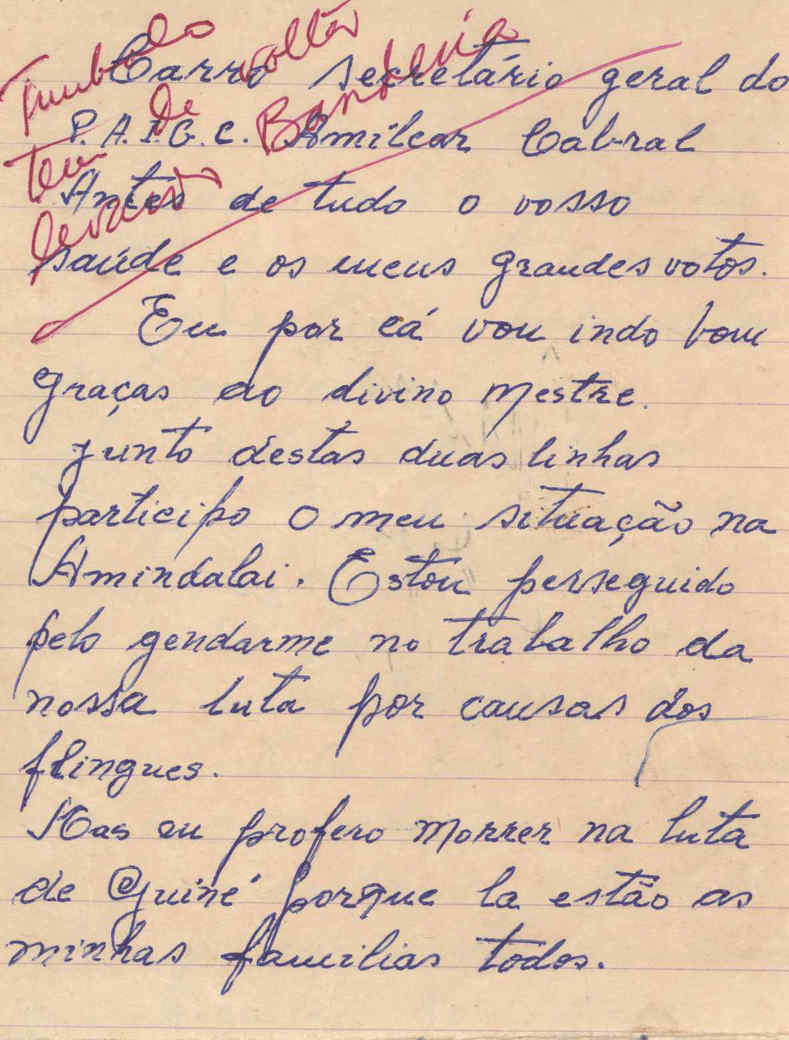 Carro secretário geral do
P.A.I.G.C. Amílcar Cabral
Antes de tudo o vosso
saúde e os meus grandes votos.
Eu por cá vou indo bom
graças ao divino mestre.
junto destas duas linhas
participo o meu situação na
Amindalai. Estou perseguido
pelo gendarme no trabalho da
nossa luta por causas dos
flingues.
Mas eu profero morrer na luta
de Guiné porque la estão as
minhas familias todos.
tem de voltar
Bandeira